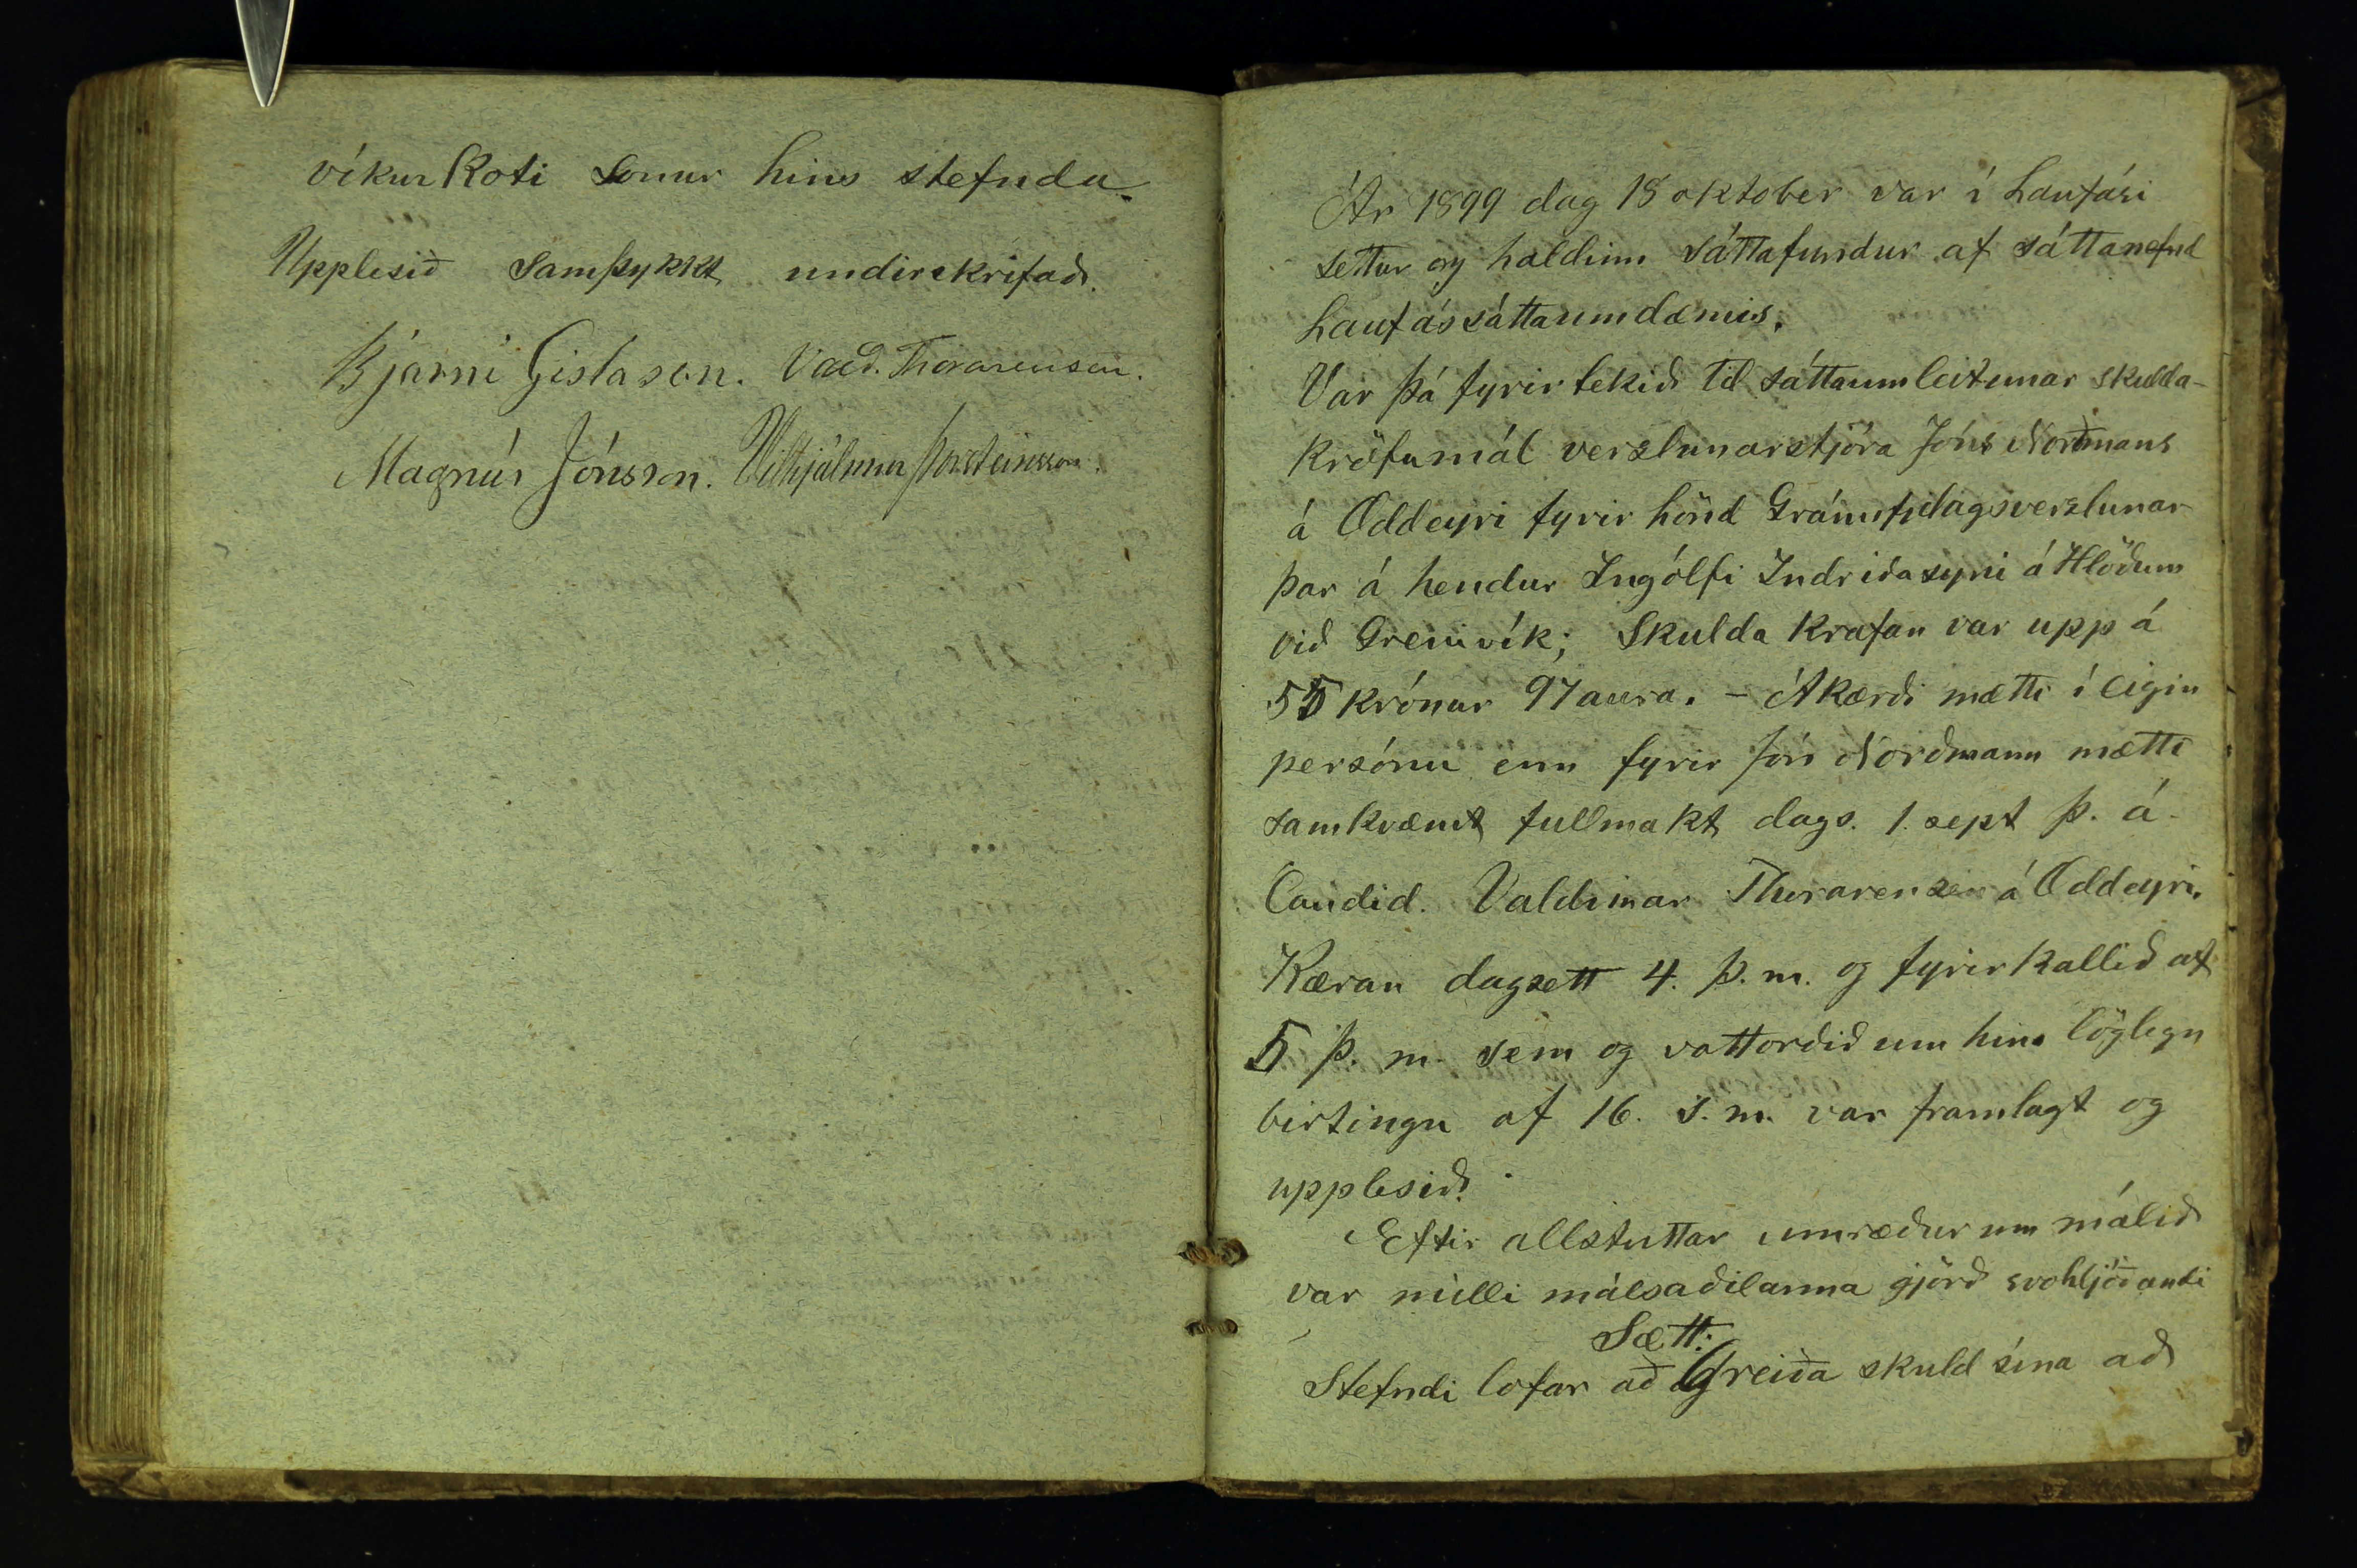 víkurkoti sonur hins stefnda.
Upplesið samþykkt undirskrifað.
Bjarni Gíslason. Vald. Thorarensen.
Magnús Jónsson. Vilhjálmur Þorsteinsson.
Ár 1899 dag 18 oktober var í Laufási
settur og haldinn sáttafundur af sáttanefnd
Laufássáttaumdæmis.
Var þá fyrirtekið til sáttaumleitunar skulda-
kröfumál verzlunarstjóra Jóns Norðmans
á Oddeyri fyrir hönd Gránufjelagsverzlunar
þar á hendur Ingólfi Indriðasyni á Hlöðum
við Grenivík; Skulda krafan var upp á
55 krónur 97 aura. – Ákærði mætti í eigin
persónu enn fyrir Jón Norðmann mætti
samkvæmt fullmakt dags. 1. sept þ. á.
Candid. Valdimar Thorarensen á Oddeyri.
Kæran dagsett 4. þ. m. og fyrirkallið af
5 þ. m. sem og vottorðið um hina löglegu
birtingu af 16. s. m. var framlagt og
upplesið.
Eftir allstuttar umræður um málið
var milli málsaðilanna gjörð svohljóðandi
Sætt:
Stefndi lofar að Greiða skuld sína að